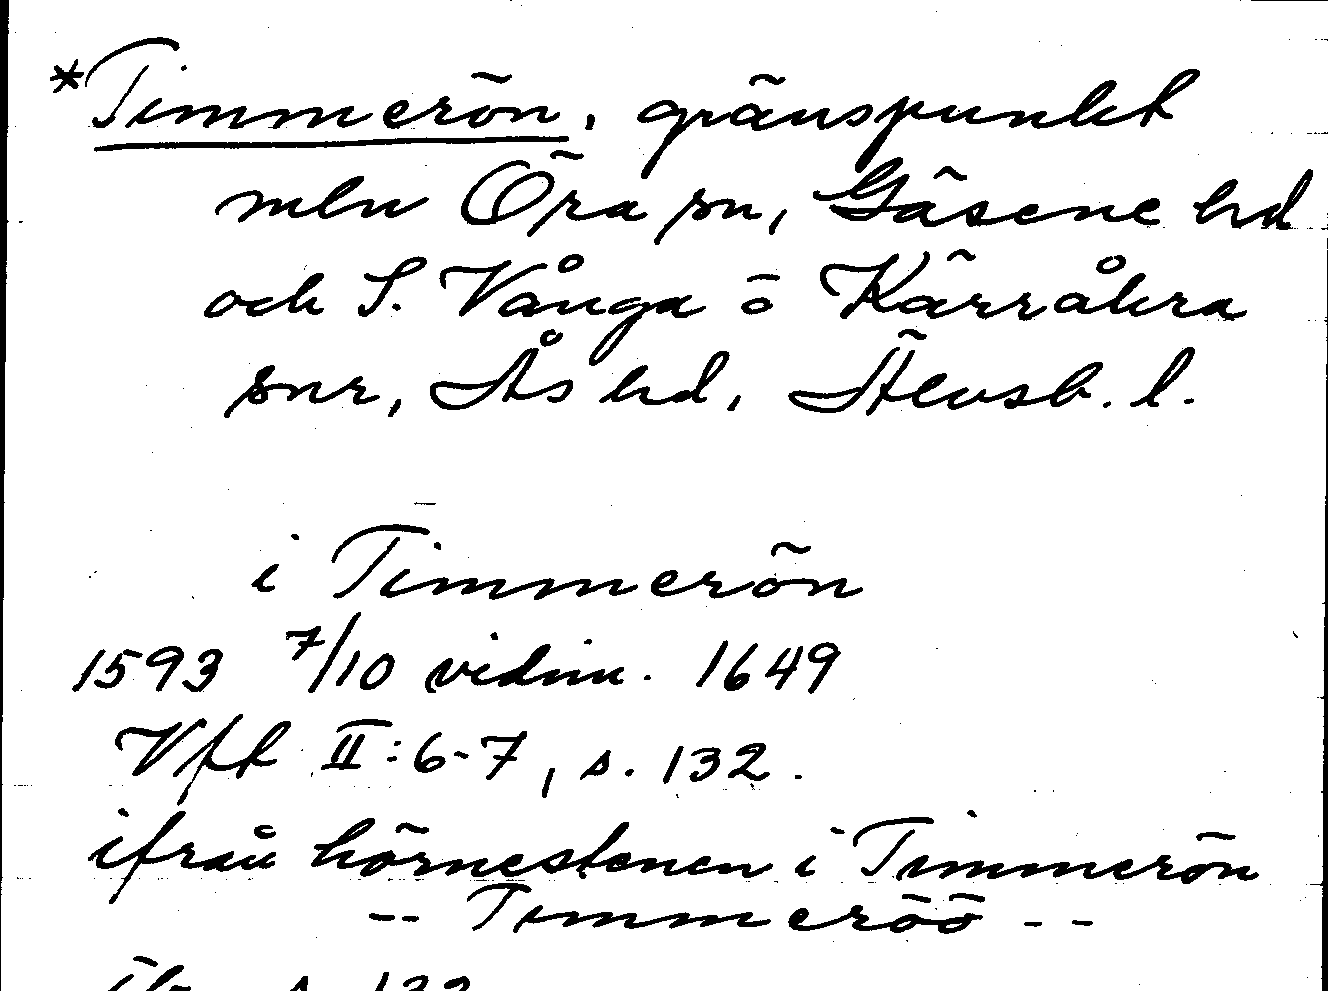 *Timmerön, gränspunkt
mln Öra sn, Gäsene hd
och S. Vånga o Kärråkra
snr, Ås hd, Älvsb. l.
i Timmerön
1593 7/10 vidim. 1649
Vft II:6-7, s. 132.
ifrån hörnestenen i Timmerön
-- Timmeröö --
ib. s. 132